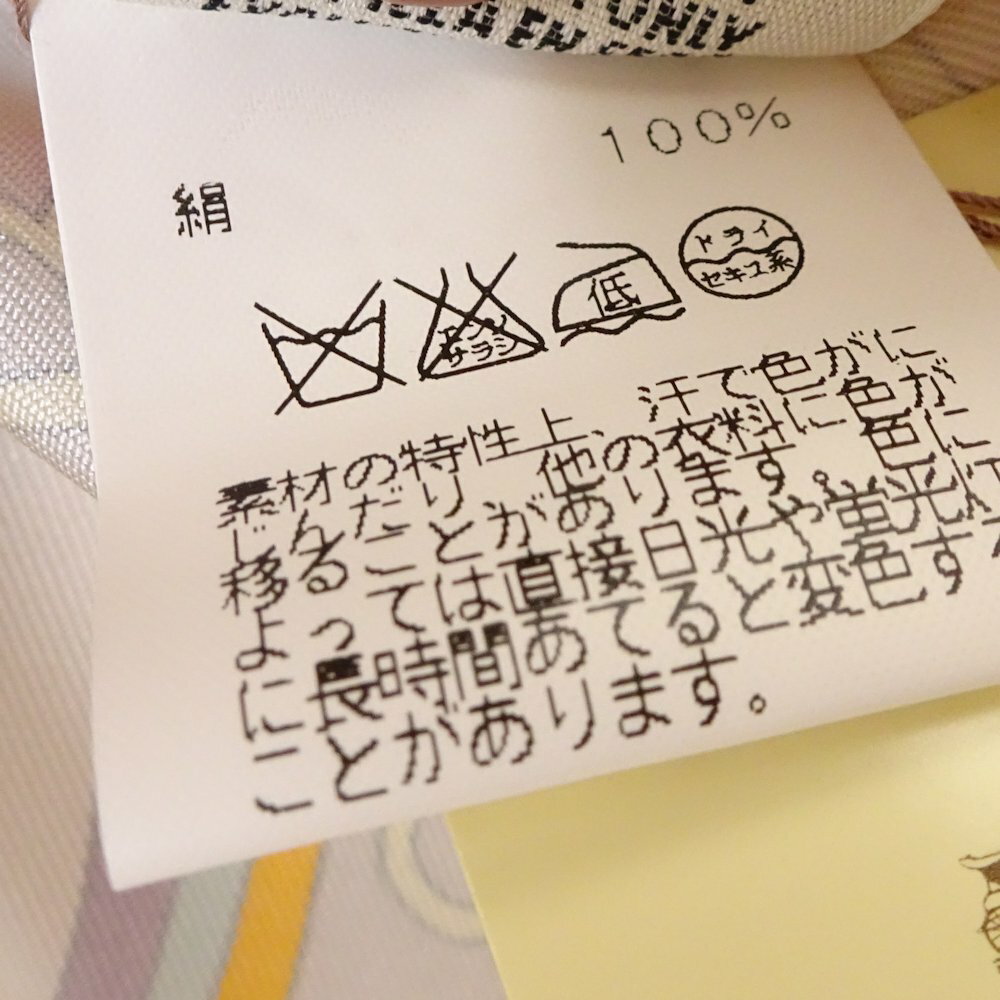 ONLY
絹 100%
エンソ
サラシ
低
ドライ
セキユ系
素材の特性上、汗で色がに
じんだり 他の衣料に色が
移ることがあります。色に
よっては直接日光や蛍光灯
に長時間あてると変色す
ことがあります。